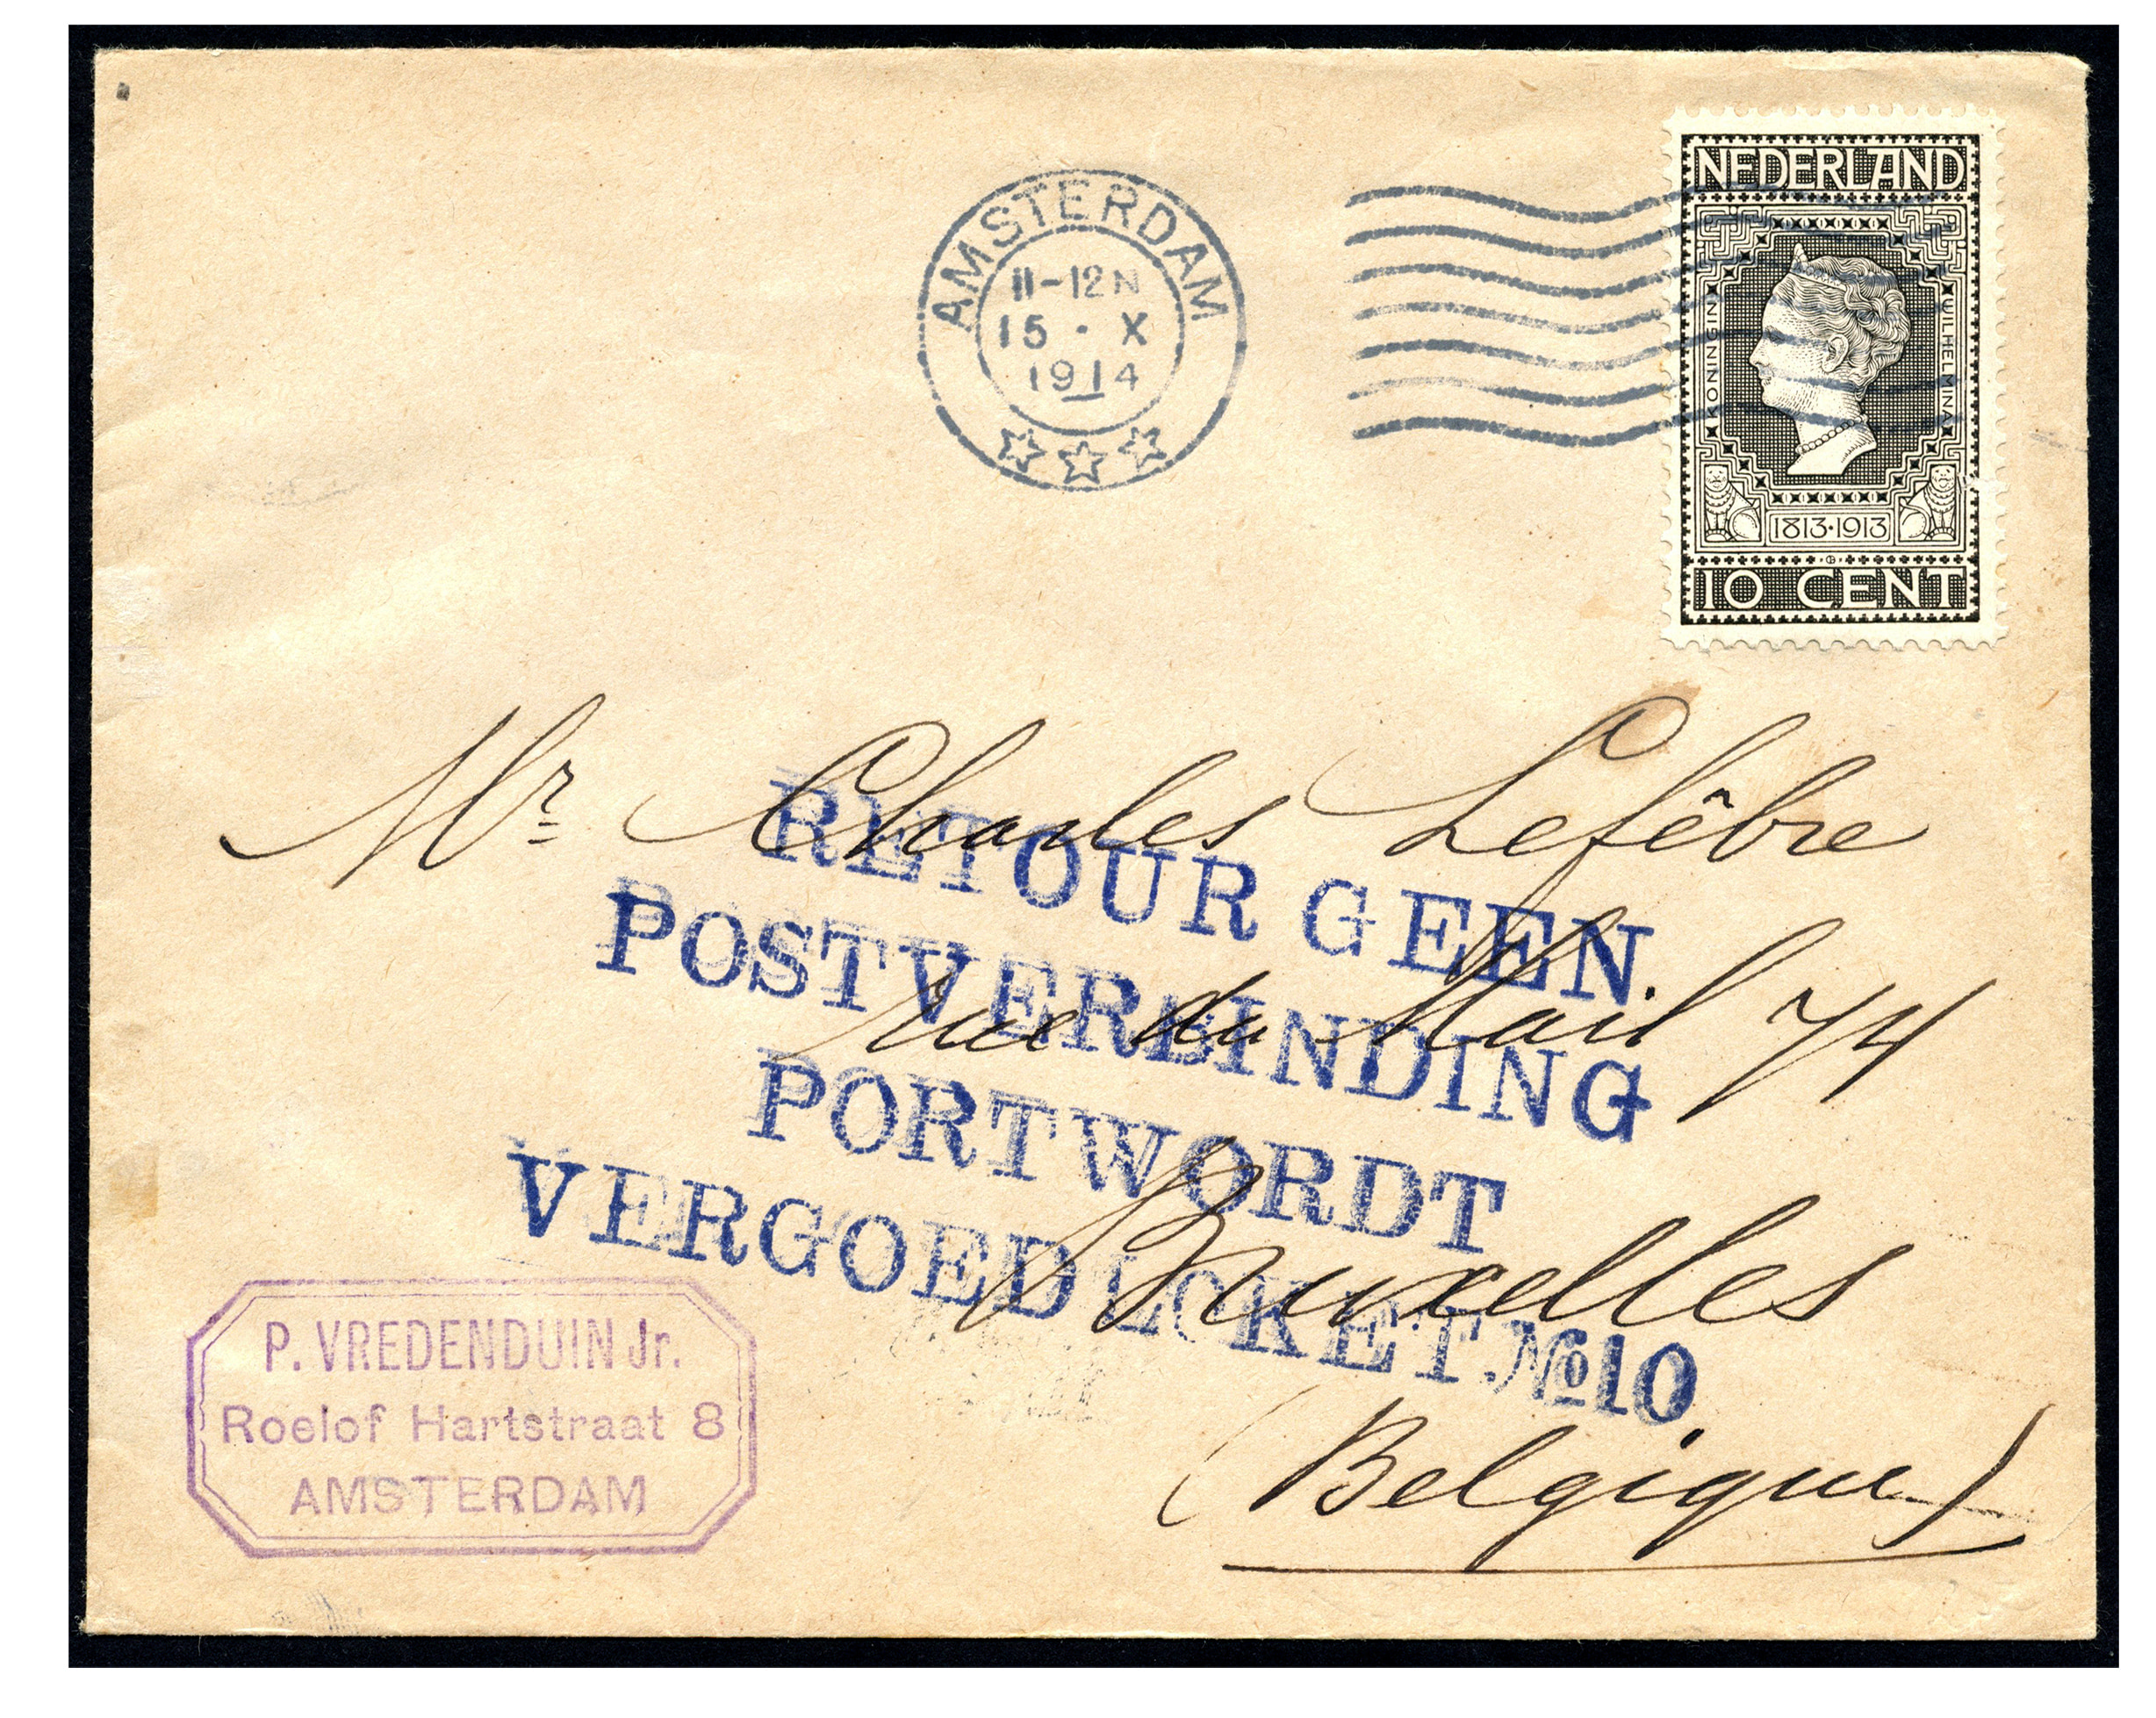 AMSTERDAM
11-12N
15 · X
1914
NEDERLAND
KONINGIN
WILHELMINA
1813·1913
10 CENT
Mr Charles Lefêbre
rue du Mail 74
Bruxelles
(Belgique)
RETOUR GEEN.
POSTVERBINDING
PORT WORDT
VERGOED LOKET.№10
P. VREDENDUIN Jr.
Roelof Hartstraat 8
AMSTERDAM